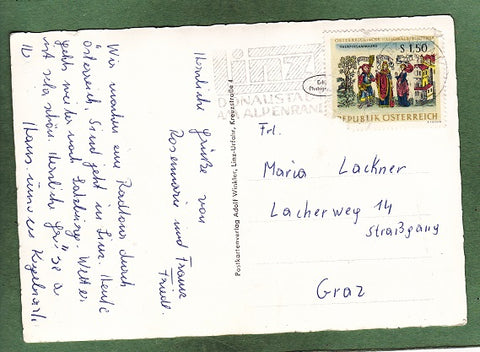 Wir machen eine Radtour durch
Österreich. Sind jetzt in Linz. Heute
geht's weiter nach Salzburg. Wetter
ist sehr schön. Herzliche Grüße
Hans
Herzliche Grüße von
Rosemarie und Traude
Friedl.
Postkartenverlag Adolf Winkler, Linz-Urfahr, Kreuzstraße 4
linz
DONAUSTADT
AM ALPENRAND
ÖSTERREICHISCHE NATIONALBIBLIOTHEK
THEATERSAMMLUNG
S 1,50
REPUBLIK ÖSTERREICH
Frl.
Maria Lackner
Lacherweg 14
Straßgang
Graz